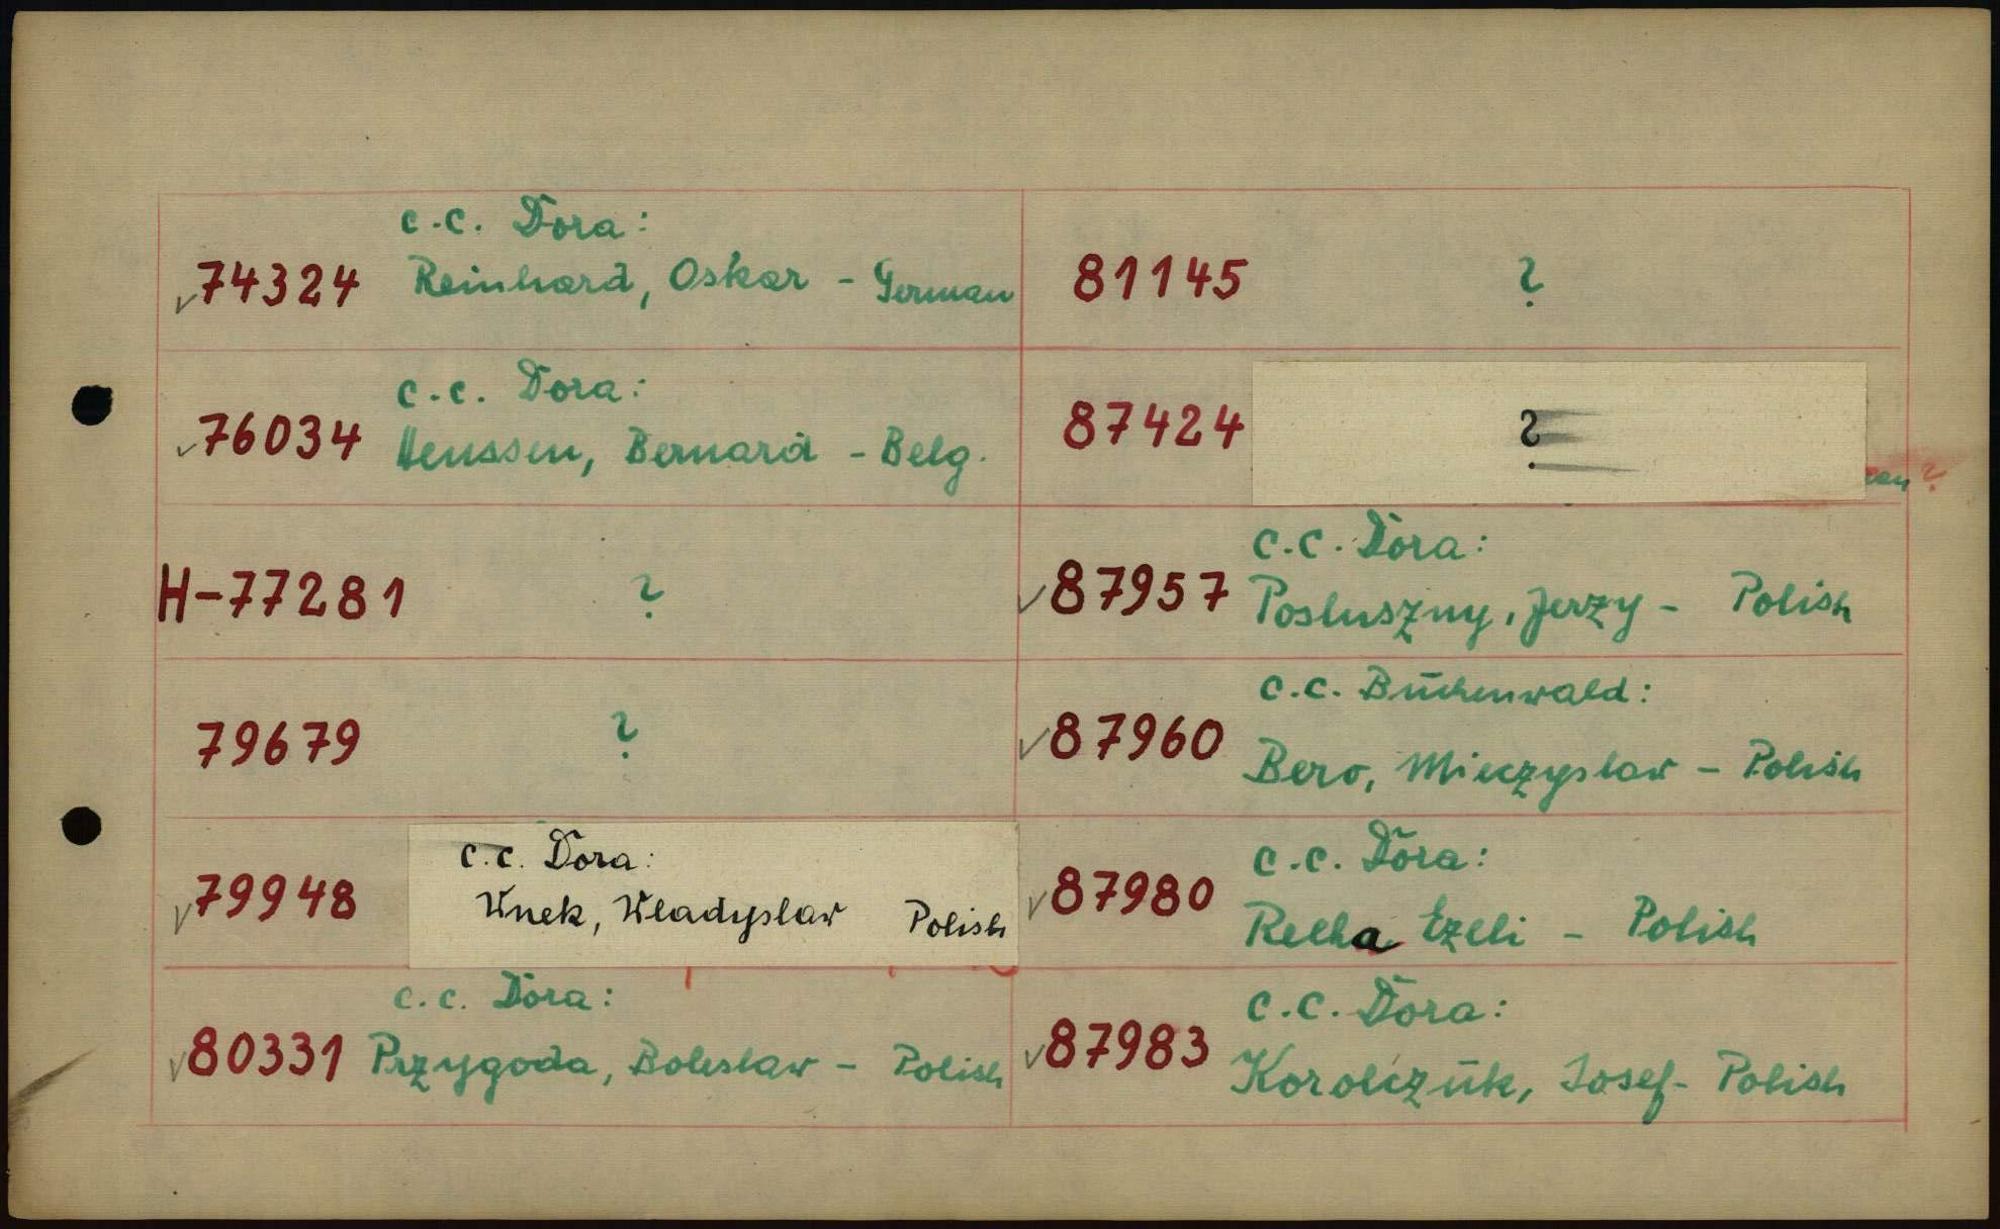 c.c. Dora:
✓74324 Reinhard, Oskar - German
c.c. Dora:
✓76034 Henssen, Bernard - Belg.
H-77281 ?
79679 ?
c.c. Dora:
✓79948 Wnek, Wladyslaw Polish
c.c. Dora:
✓80331 Przygoda, Boleslaw - Polish
81145 ?
87424 ?
?
c.c. Dora:
✓87957 Posluszny, Jerzy - Polish
c.c. Buchenwald:
✓87960 Bero, Mieczyslaw - Polish
c.c. Dora:
✓87980 Polish
c.c. Dora:
✓87983 Korolczuk, Josef - Polish